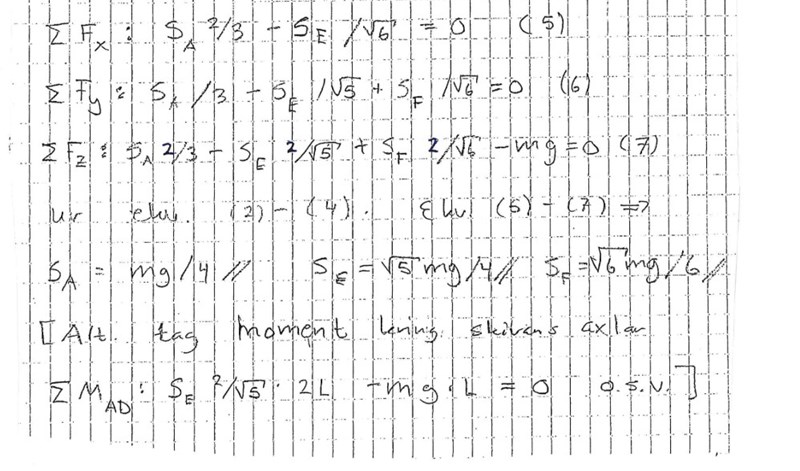 Σ Fx : SA 2/3 - SE /√6 = 0 (5)
Σ Fy : SA /3 - SE /√5 + SF /√6 = 0 (6)
Σ Fz : SA 2/3 - SE 2/√5 + SF 2/√6 - mg = 0 (7)
ur ekv. (2) - (4). Ekv. (5) - (7) ⇒
SA = mg/4 // SE = √5 mg/4 // SF = √6 mg/6 //
[Alt. tag moment kring skivans axlar
Σ MAD : SE 2/√5 · 2L - mg · L = 0 o.s.v.]